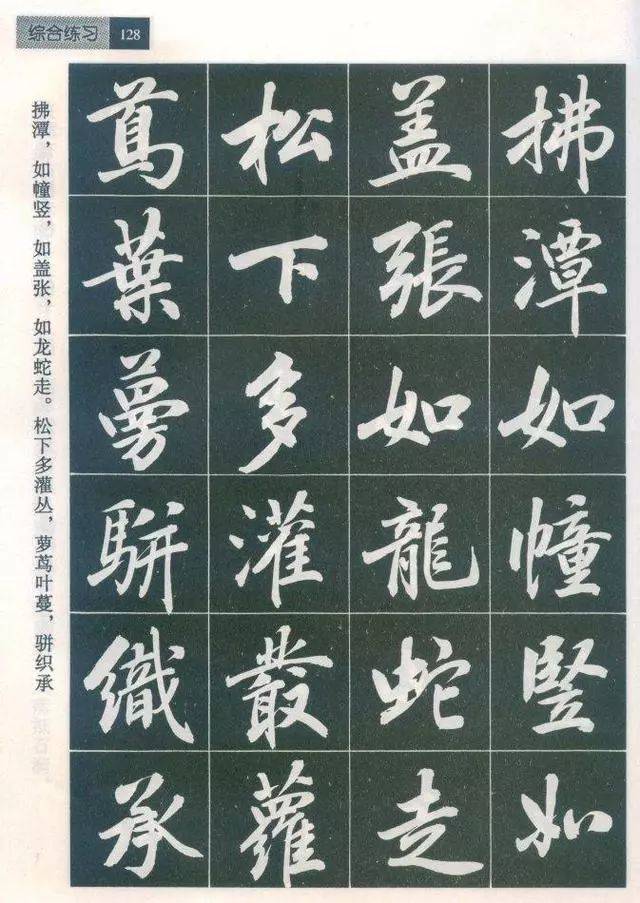 综合练习 128
拂潭如幢豎如
盖張如龍蛇走
松下多灌叢蘿
蔦葉蔓駢織承
拂潭，如幢竖，如盖张，如龙蛇走。松下多灌丛，萝茑叶蔓，骈织承